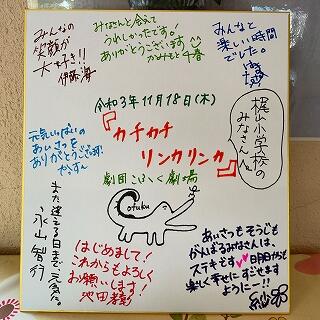 みんなの
笑顔が
大好き!!
伊藤海
みなさんと会えて
うれしかったです!
ありがとうございます
かみもと千春
みんなと
楽しい時間
でした。
令和3年11月18日(木)
『カチカチ
リンカリンカ』
梶山小学校の
みなさんへ
元気いっぱいの
あいさつを
ありがとうございます!
劇団こふく劇場
cofuku
また逢える日まで、元気で。
永山智行
はじめまして!
これからもよろしく
お願いします!
池田孝彰
あいさつもそうじも
がんばるみなさんは、
ステキです
明日からも
楽しく幸せにすごせます
ように…!!